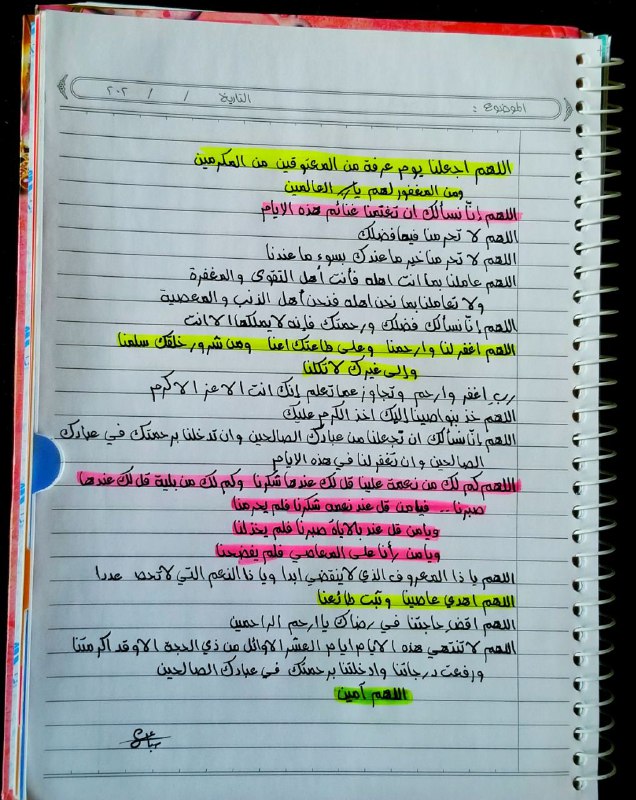 الموضوع : التاريخ / / ٢٠٢
اللهم اجعلنا يوم عرفة من المعتوقين من المكرمين
ومن المغفور لهم يارب العالمين
اللهم إنّا نسألك ان تغنمنا غنائم هذه الايام
اللهم لا تحرمنا فيها فضلك
اللهم لا تحرمنا خير ما عندك بسوء ما عندنا
اللهم عاملنا بما انت اهله فأنت أهل التقوى والمغفرة
ولا تعاملنا بما نحن اهله فنحن أهل الذنب والمعصية
اللهم إنّا نسألك فضلك ورحمتك فإنه لا يملكها الا انت
اللهم اغفر لنا وارحمنا وعلى طاعتك اعنا ومن شرور خلقك سلمنا
وإلى غيرك لا تكلنا
رب اغفر وارحم وتجاوز عما تعلم إنك انت الاعز الاكرم
اللهم خذ بنواصينا إليك اخذ الكرم عليك
اللهم إنّا نسألك ان تجعلنا من عبادك الصالحين وان تدخلنا برحمتك في عبادك
الصالحين وان تغفر لنا في هذه الايام
اللهم كم لك من نعمة علينا قل لك عندها شكرنا وكم لك من بلية قل لك عندها
صبرنا ... فيامن قل عند نعمه شكرنا فلم يحرمنا
ويامن قل عند بلاياه صبرنا فلم يخذلنا
ويامن رأنا على المعاصي فلم يفضحنا
اللهم يا ذا المعروف الذي لا ينقضي ابدا ويا ذا النعم التي لا تحص عددا
اللهم اهدي عاصينا وثبت طائعنا
اللهم اقض حاجتنا في رضاك يا ارحم الراحمين
اللهم لا تنتهي هذه الايام ايام العشر الاوائل من ذي الحجة الا وقد اكرمتنا
ورفعت درجاتنا وادخلتنا برحمتك في عبادك الصالحين
اللهم آمين